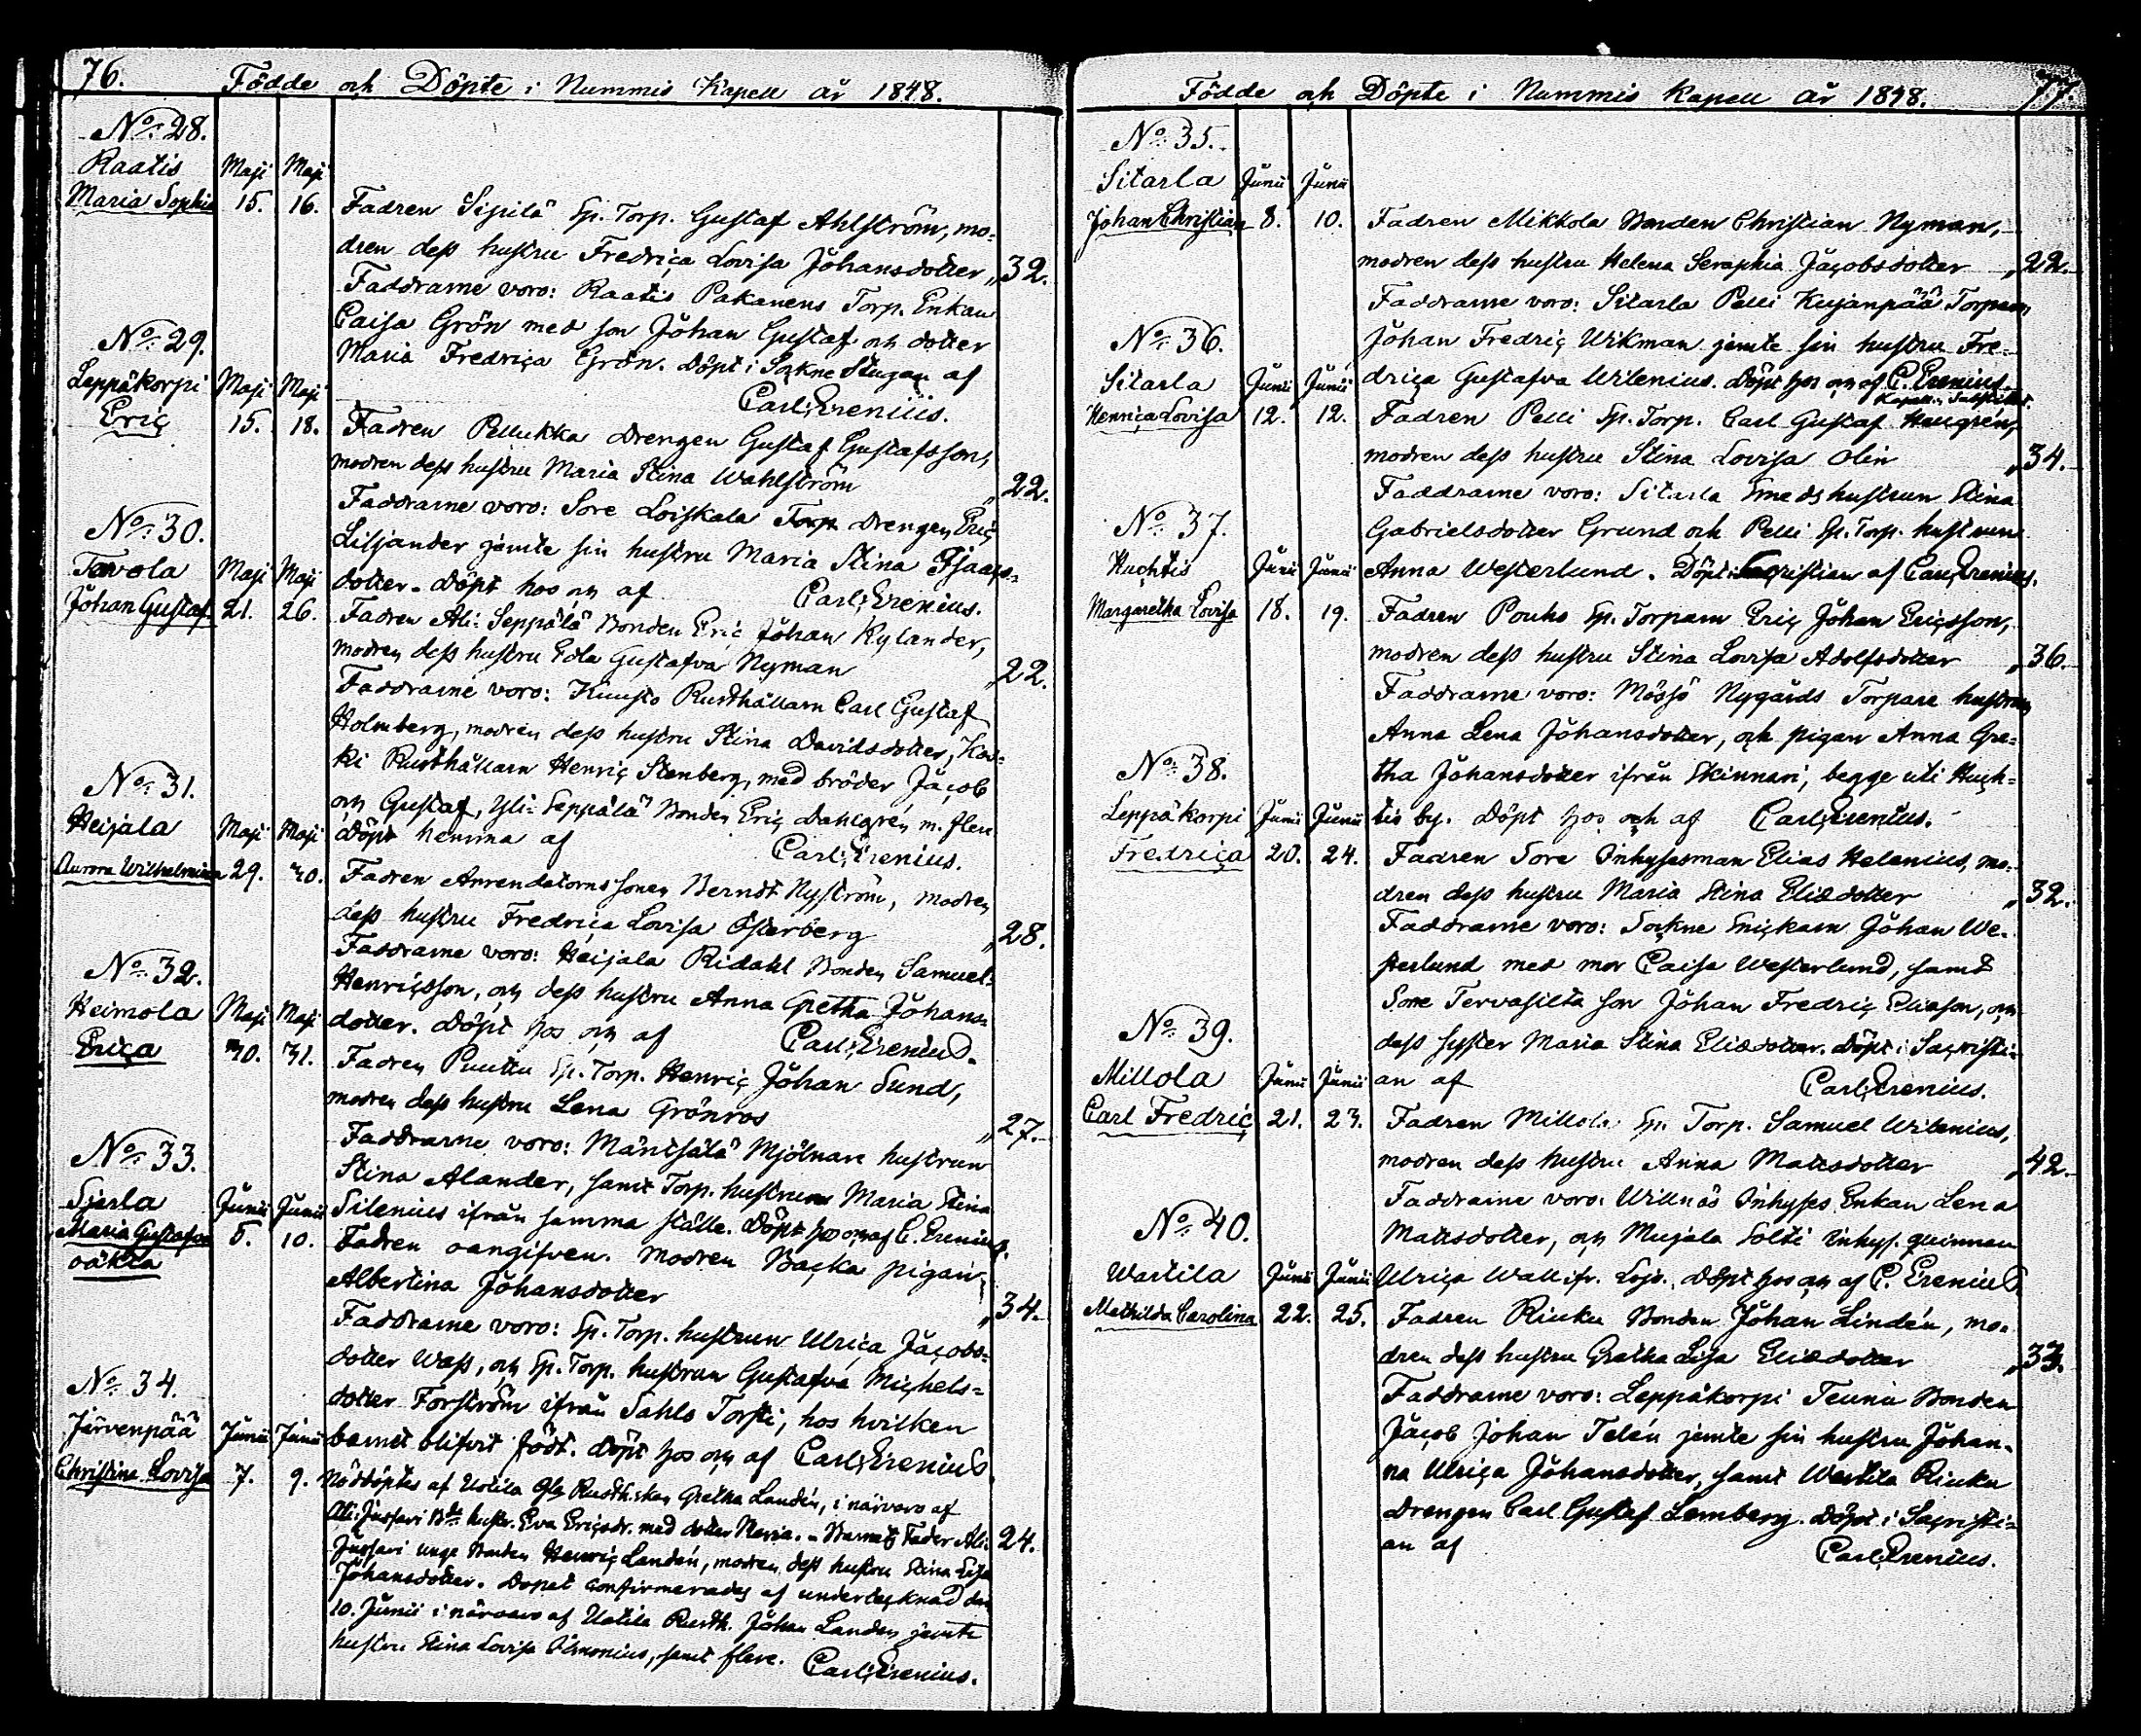 76.
Födde och Döpte i Nummis Kapell år 1848.
No: 28.
Raatis Maji Maji
Maria Sophia 15. 16. Fadren Sipilä Sp. Torp. Gustaf Ahlström, mo-
dren dess hustru Fredrica Lovisa Johansdotter „ 32.
Faddrarne voro: Raatis Pakanens Torp. Enkan
Caisa Grön med son Johan Gustaf och dotter
Maria Fredrica Grön. Döpt i Sockne Stugan af
Carl Erenius.
No: 29.
Leppäkorpi Maji Maji
Eric 15. 18. Fadren Pellukka Drengen Gustaf Gustafsson,
modren dess hustru Maria Stina Wahlström „ 22.
Faddrarne voro: Sore Loiskala Torp. Drengen Eric
Liljander jemte sin hustru Maria Stina
dotter. Döpt hos och af Carl Erenius.
No: 30.
Tavola Maji Maji
Johan Gustaf 21. 26. Fadren Ali-Seppälä Bonden Eric Johan Kylander,
modren dess hustru Edla Gustafva Nyman „ 22.
Faddrarne voro: Kuusto Rusthållarn Carl Gustaf
Holmberg, modren dess hustru Stina Davidsdotter, Kos-
ki Rusthållarn Henric Stenberg, med bröder Jacob
och Gustaf, Yli-Seppälä Bonden Eric Dahlgrén m. flere
Döpt hemma af Carl Erenius.
No: 31.
Heijala Maji Maji
Aurora Wilhelmina 29. 30. Fadren Arrendatorns sonen Berndt Nyström, modren
dess hustru Fredrica Lovisa Österberg „ 28.
Faddrarne voro: Heijala Ridahl Bonden Samuel
Henricsson, och dess hustru Anna Gretha Johans-
dotter. Döpt hos och af Carl Erenius.
No: 32.
Heimola Maji Maji
Erica 30. 31. Fadren Puuttu Sp. Torp. Henric Johan Sund,
modren dess hustru Lena Grönros „ 27.
Faddrarne voro: Mäntsälä Mjölnare hustrun
Stina Alander, samt Torp. hustrun Maria Stina
Silenius ifrån samma ställe. Döpt hos och af C. Erenius.
No: 33.
Sierla Junii Junii
Maria Gustafva 5. 10. Fadren oangifven. Modren Backa pigan
oäkta
Albertina Johansdotter „ 34.
Faddrarne voro: Sp. Torp. hustrun Ulrica Jacobs-
dotter Wass, och Sp. Torp. hustrun Gustafva Michels-
dotter Forström ifrån Sahls Torsti, hos hvilken
barnet blifvit födt. Döpt hos och af Carl Erenius
No: 34.
Järvenpää Junii Junii
Christina Lovisa 7. 9. Nöddöptes af Uotila Gla Rusth.skan Gretha Landén, i närvaro af
Ali-Jussari Bde hustr. Eva Ericsdr. med dotter Maria. - Barnets Fader Ali- 24.
Jussari unge Bonden Henric Landén, modren dess hustru Stina Lisa
Johansdotter. Dopet confirmerades af undertecknad den
10. Junii i närvaro af Uotila Rusth. Johan Landen jemte
hustru Stina Lovisa Simonius, samt flere. Carl Erenius.
Födde och Döpte i Nummis Kapell år 1848.
77.
No: 35.
Sitarla Junii Junii
Johan Christian 8. 10. Fadren Mikkola Bonden Christian Nyman,
modren dess hustru Helena Seraphia Jacobsdotter „ 22.
Faddrarne voro: Sitarla Pelli Kujanpää Torparn
Johan Fredric Wikman jemte sin hustru Fre-
drica Gustafva Wilenius. Döpt hos och af C. Erenius.
Kapell. Substitut.
No: 36.
Sitarla Junii Junii
Henrica Lovisa 12. 12. Fadren Pelli Sp. Torp. Carl Gustaf Haugrén,
modren dess hustru Stina Lovisa Olin „ 34.
Faddrarne voro: Sitarla Smeds hustrun Stina
Gabrielsdotter Grund och Pelli Sp. Torp. hustrun
Anna Westerlund. Döpt i Sacristian af Carl Erenius.
No: 37.
Huchtis Junii Junii
Margaretha Lovisa 18. 19. Fadren Pouho Sp. Torparn Eric Johan Ericsson,
modren dess hustru Stina Lovisa Adolfsdotter „ 36.
Faddrarne voro: Mössö Nygårds Torpare hustrun
Anna Lena Johansdotter, och pigan Anna Gre-
tha Johansdotter ifrån Skinnari, begge uti Huch-
tis by. Döpt hos och af Carl Erenius.
No: 38.
Leppäkorpi Junii Junii
Fredrica 20. 24. Fadren Sore Inhysesman Elias Helenius, mo-
dren dess hustru Maria Stina Eliædotter „ 32.
Faddrarne voro: Sockne Snickarn Johan We-
sterlund med mor Caisa Westerlund, samt
Sore Tervasilta son Johan Fredric Eliæson, och
dess syster Maria Stina Eliædotter. Döpt i Sacristi-
an af Carl Erenius.
No: 39.
Millola Junii Junii
Carl Fredric 21. 23. Fadren Millola Sp. Torp. Samuel Wilenius,
modren dess hustru Anna Mattsdotter „ 42.
Faddrarne voro: Willnäs Inhyses Enkan Lena
Mattsdotter, och Mujala Solti Inhys. qvinnan
Ulrica Wall ifr. Lojo. Döpt hos och af C. Erenius.
No: 40.
Wartila Junii Junii
Mathilda Carolina 22. 25. Fadren Riuku Bonden Johan Lindén, mo-
dren dess hustru Gretha Lisa Eliædotter „ 33.
Faddrarne voro: Leppäkorpi Teunu Bonden
Jacob Johan Telén jemte sin hustru Johan-
na Ulrica Johansdotter, samt Wartila Riuku
Drengen Carl Gustaf Lemberg. Döpt i Sacristi-
an af Carl Erenius.